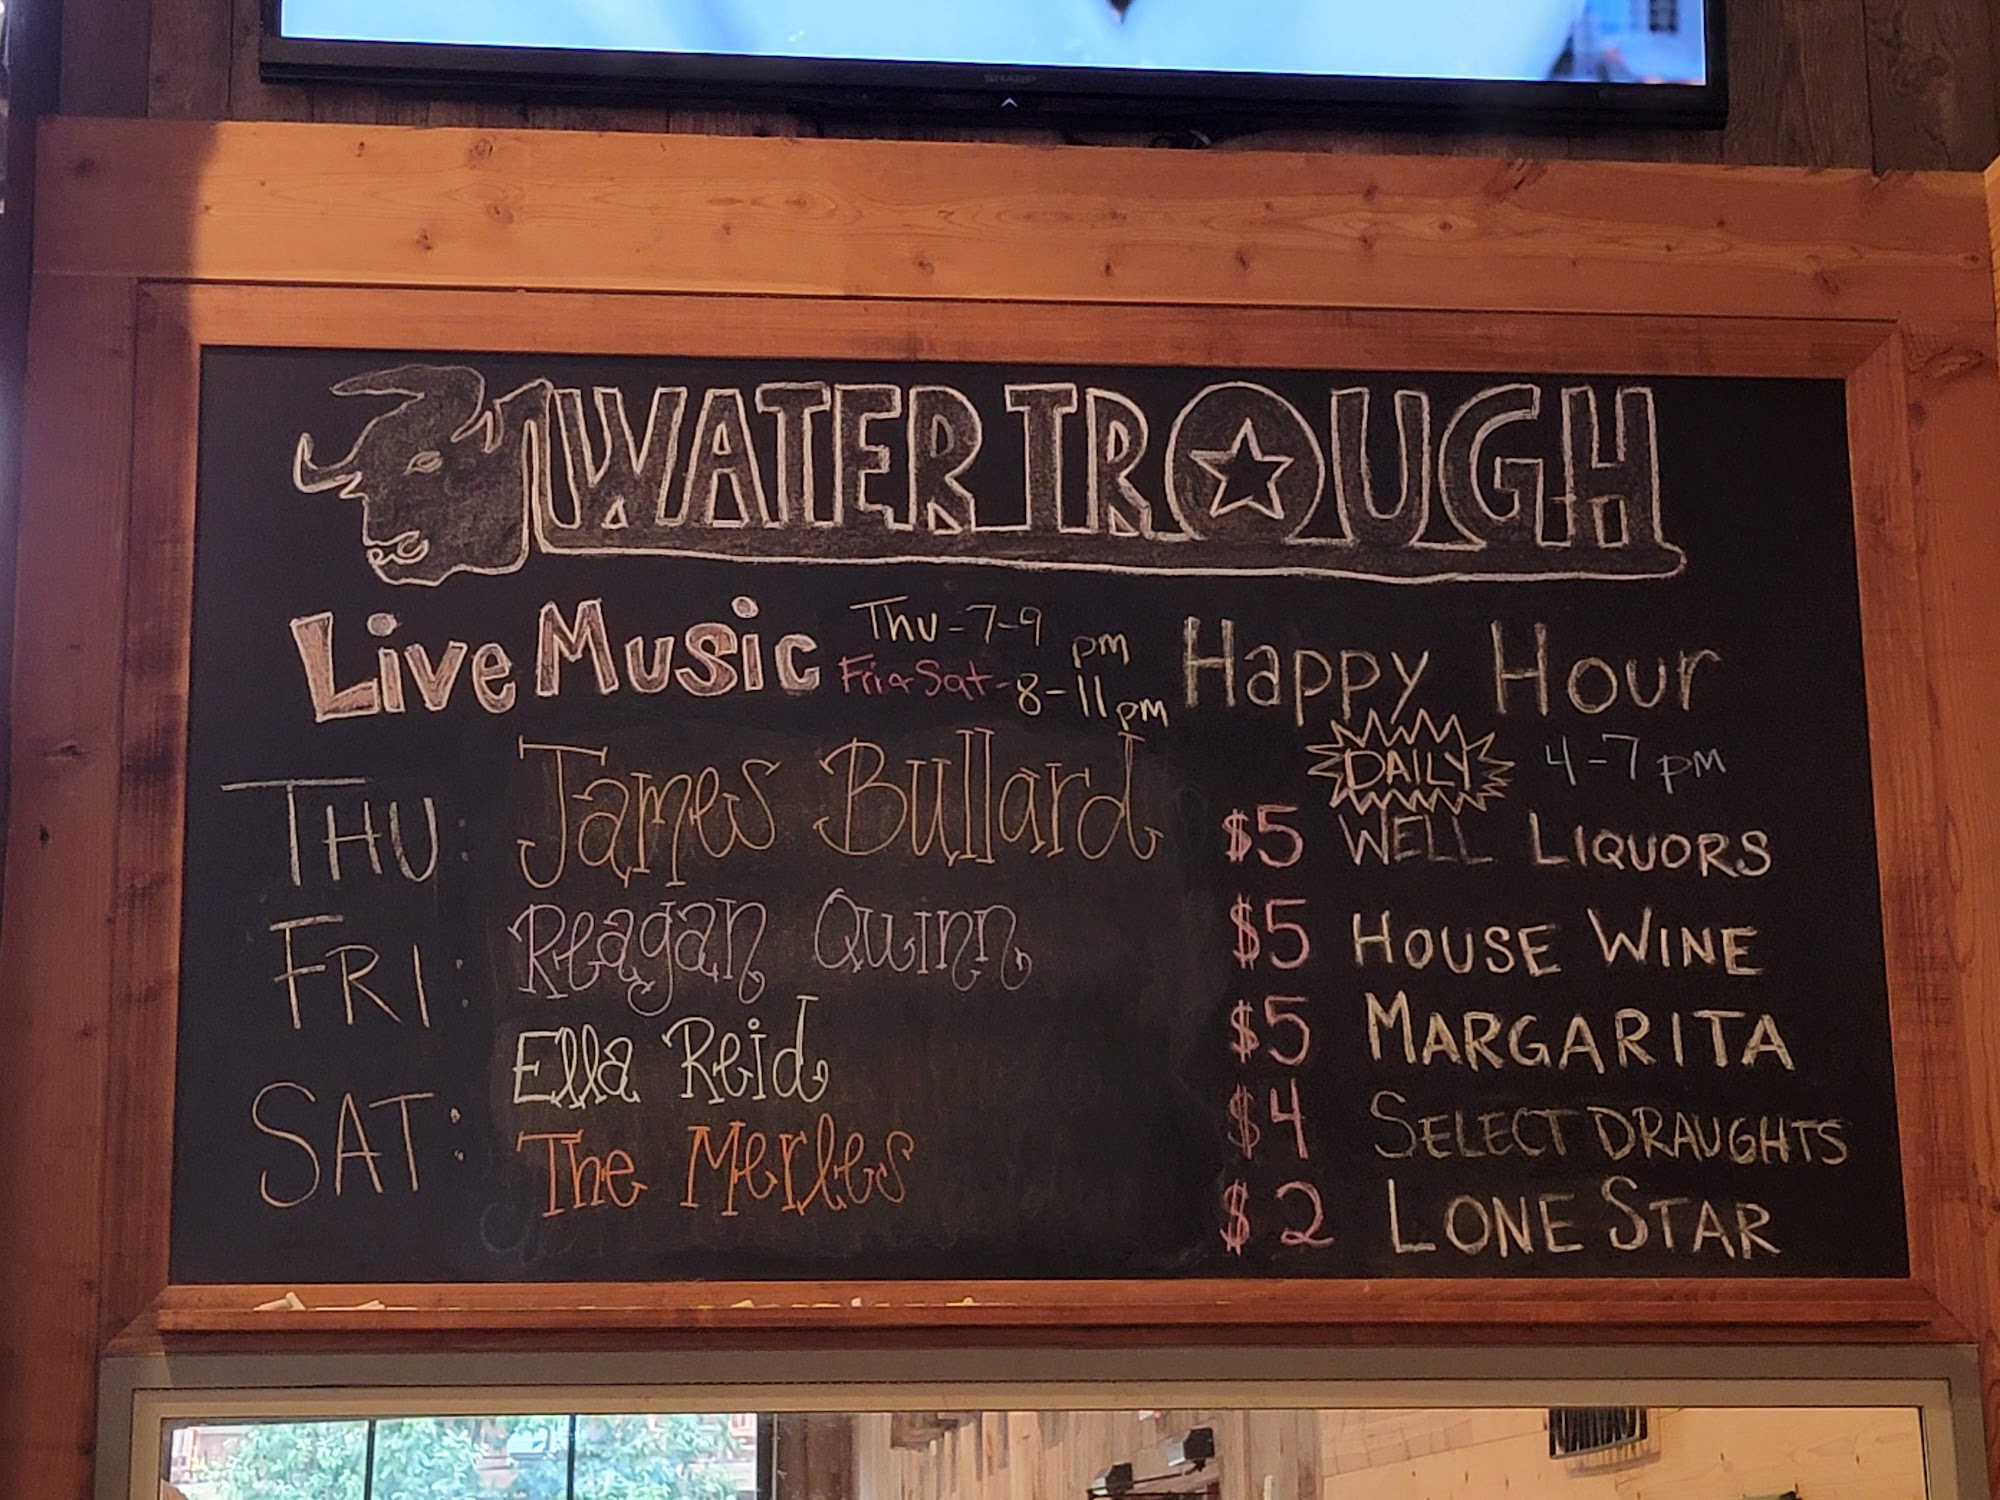 SHARP
WATER TROUGH
Live Music
Thu-7-9 pm
Fri & Sat-8-11pm
THU: James Bullard
FRI: Reagan Quinn
Ella Reid
SAT: The Merles
Happy Hour
DAILY 4-7pm
$5 WELL LIQUORS
$5 HOUSE WINE
$5 MARGARITA
$4 SELECT DRAUGHTS
$2 LONE STAR